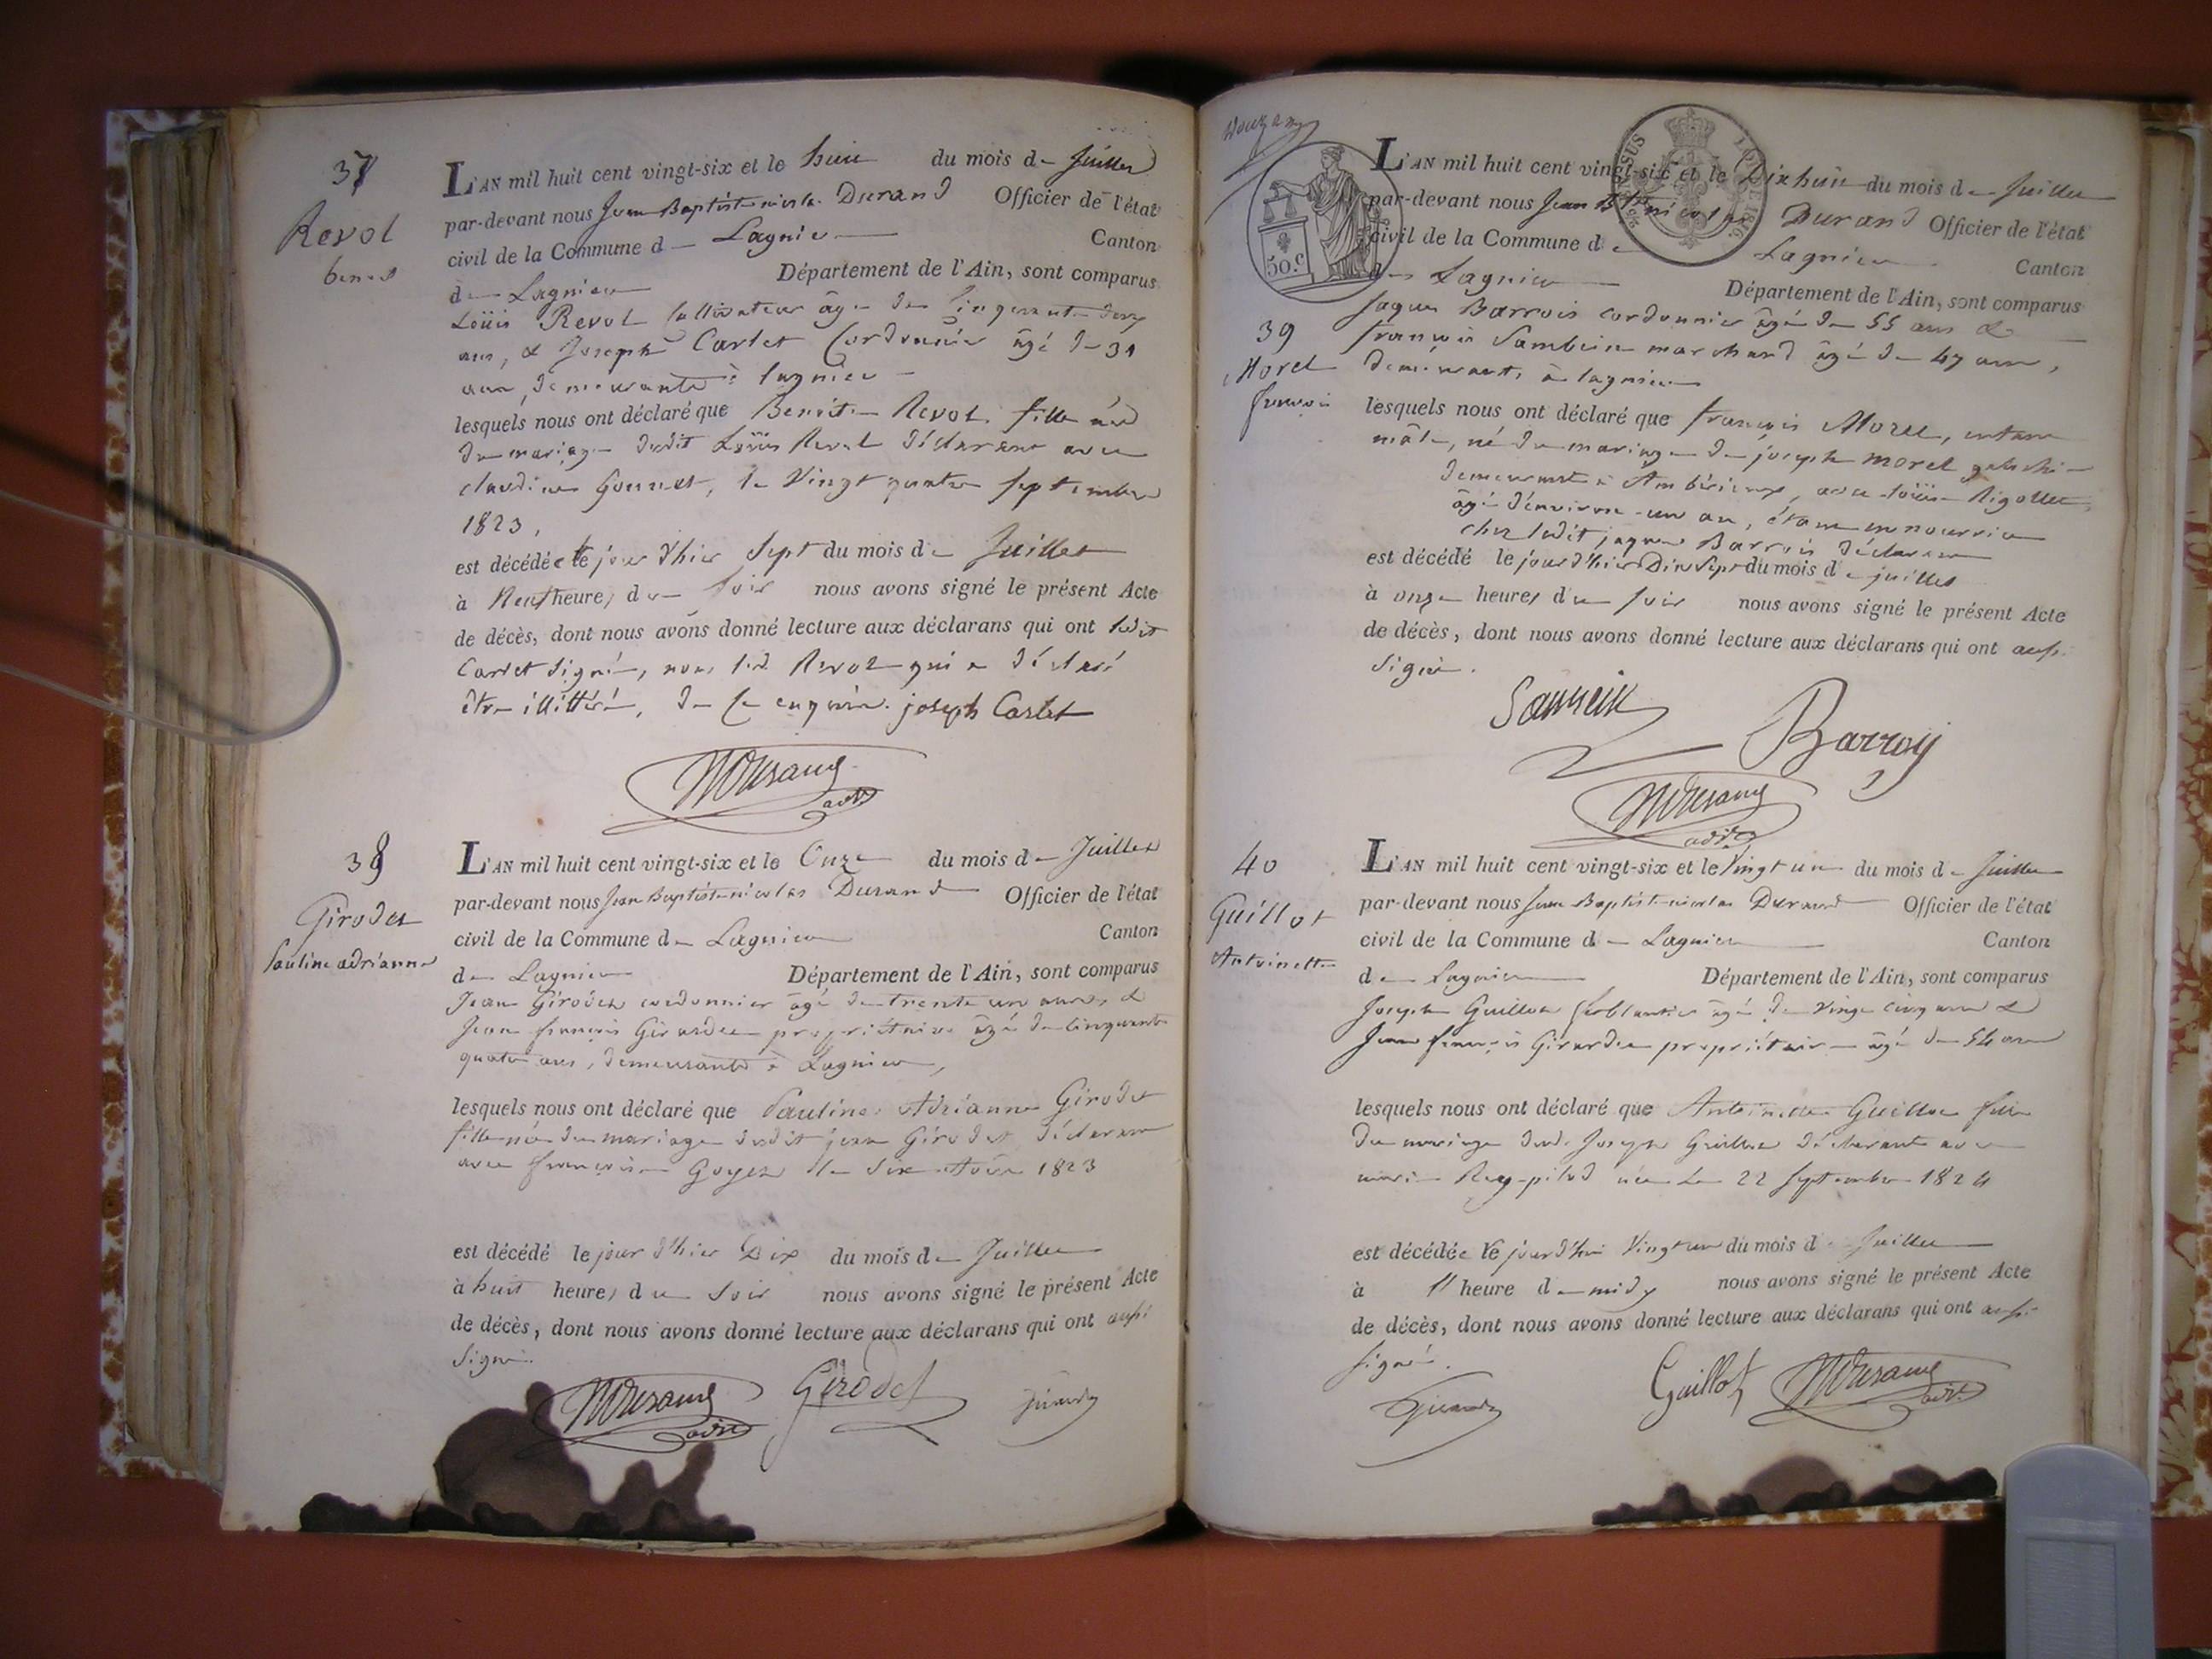 37
Revol
benoit
L'AN mil huit cent vingt-six et le huit du mois de Juillet
par-devant nous Jean Baptiste nicolas Durand Officier de l'état
civil de la Commune de Lagnieu Canton
de Lagnieu Département de l'Ain, sont comparus
Loüis Revol Cultivateur âgé de Cinquante deux
ans, et Joseph Carlet Cordonnier âgé de 31
ans, demeurants à lagnieu
lesquels nous ont déclaré que Benoite Revol fille née
du mariage dudit Loüis Revol déclarant avec
claudine Gonnet, le Vingt quatre septembre
1823,
est décédée le jour d'hier Sept du mois de Juillet
à Neuf heures du Soir nous avons signé le présent Acte
de décès, dont nous avons donné lecture aux déclarans qui ont ledit
Carlet signé, non led. Revol qui a déclaré
être illittéré, de ce enquis. joseph Carlet
adjt
38
Girodet
Pauline adrianne
L'AN mil huit cent vingt-six et le Onze du mois de Juillet
par-devant nous Jean Baptiste nicolas Durand Officier de l'état
civil de la Commune de Lagnieu Canton
de Lagnieu Département de l'Ain, sont comparus
Jean Girodet cordonnier âgé de trente un ans, et
Jean françois Girardet propriétaire âgé de Cinquante
quatre ans, demeurants à Lagnieu,
lesquels nous ont déclaré que Pauline Adrianne Girodet
fille née du mariage dudit jean Girodet déclarant
avec françoise Goyet le Six Août 1823
est décédé le jour d'hier Dix du mois de Juillet
à huit heures du Soir nous avons signé le présent Acte
de décès, dont nous avons donné lecture aux déclarans qui ont aussi
signé.
adjt Girodet
50.c
L'AN mil huit cent vingt-six et le Dix huit du mois de Juillet
par-devant nous Jean Bte nicolas Durand Officier de l'état
civil de la Commune de Lagnieu Canton
de Lagnieu Département de l'Ain, sont comparus
39
Morel
françois
Jaques Barrois cordonnier âgé de 55 ans et
françois Sambein marchand âgé de 47 ans,
demeurants à lagnieu
lesquels nous ont déclaré que françois Morel, enfant
mâle, né du mariage de joseph morel
demeurant à Ambérieux, avec Rigollet
âgé d'environ un an, étant en nourrice
chez ledit jaques Barrois déclarant
est décédé le jour d'hier Dix Sept du mois de juillet
à onze heures du soir nous avons signé le présent Acte
de décès, dont nous avons donné lecture aux déclarans qui ont aussi
signé.
Barroy
adjt
40
Guillot
Antoinette
L'AN mil huit cent vingt-six et le Vingt un du mois de Juillet
par-devant nous Jean Baptiste nicolas Durand Officier de l'état
civil de la Commune de Lagnieu Canton
de Lagnieu Département de l'Ain, sont comparus
Joseph Guillot ferblantier âgé de Vingt cinq ans et
Jean françois Girardet propriétaire âgé de 54 ans
lesquels nous ont déclaré que Antoinette Guillot fille
du mariage dud. Joseph Guillot déclarant avec
marie née le 22 septembre 1824
est décédée le jourd'hui Vingt un du mois de Juillet
à 11 heure de midy nous avons signé le présent Acte
de décès, dont nous avons donné lecture aux déclarans qui ont aussi
signé.
Guillot adjt